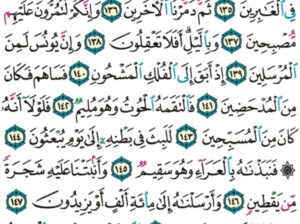 فِي ٱلْغَٰبِرِينَ ١٣٥ ثُمَّ دَمَّرْنَا ٱلْأٓخَرِينَ ١٣٦ وَإِنَّكُمْ لَتَمُرُّونَ عَلَيْهِم
مُّصْبِحِينَ ١٣٧ وَبِٱلَّيْلِ أَفَلَا تَعْقِلُونَ ١٣٨ وَإِنَّ يُونُسَ لَمِنَ
ٱلْمُرْسَلِينَ ١٣٩ إِذْ أَبَقَ إِلَى ٱلْفُلْكِ ٱلْمَشْحُونِ ١٤٠ فَسَاهَمَ فَكَانَ
مِنَ ٱلْمُدْحَضِينَ ١٤١ فَٱلْتَقَمَهُ ٱلْحُوتُ وَهُوَ مُلِيمٌ ١٤٢ فَلَوْلَآ أَنَّهُۥ
كَانَ مِنَ ٱلْمُسَبِّحِينَ ١٤٣ لَلَبِثَ فِي بَطْنِهِۦٓ إِلَىٰ يَوْمِ يُبْعَثُونَ ١٤٤
۞ فَنَبَذْنَٰهُ بِٱلْعَرَآءِ وَهُوَ سَقِيمٌ ١٤٥ وَأَنۢبَتْنَا عَلَيْهِ شَجَرَةً
مِّن يَقْطِينٍ ١٤٦ وَأَرْسَلْنَٰهُ إِلَىٰ مِا۟ئَةِ أَلْفٍ أَوْ يَزِيدُونَ ١٤٧